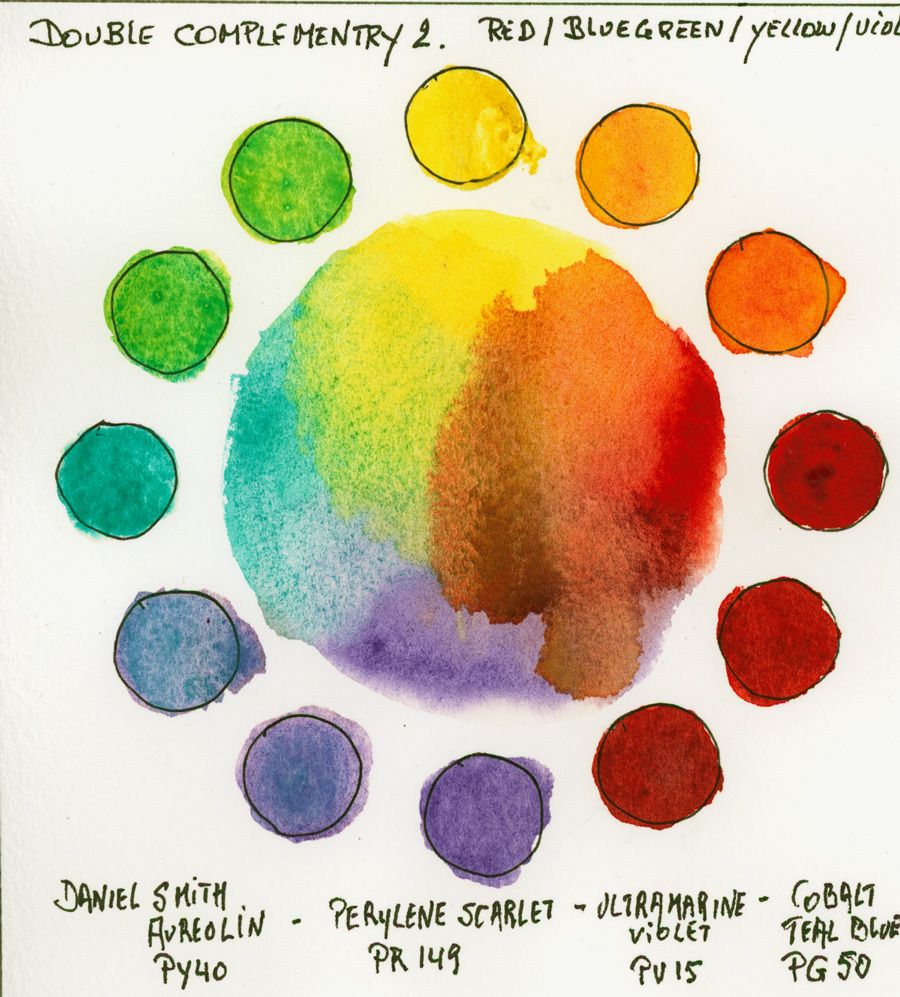 DOUBLE COMPLEMENTRY 2. RED/BLUEGREEN/YELLOW/VIOL
DANIEL SMITH
AUREOLIN - PERYLENE SCARLET - ULTRAMARINE VIOLET - COBALT TEAL BLUE
PY40 PR149 PV15 PG50